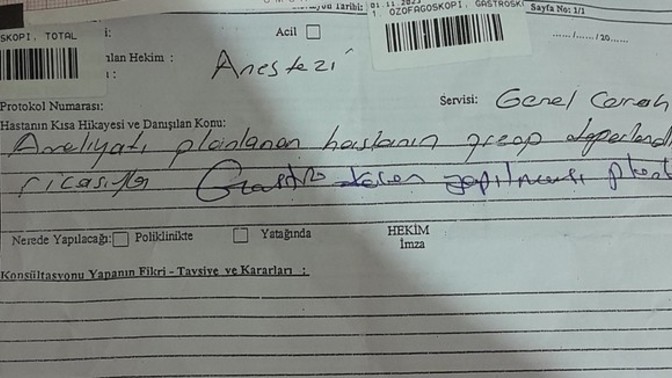 Tarihi:
01.11.2023
1. OZOFAGOSKOPI, GASTROSKI
Sayfa No: 1/1
SKOPI, TOTAL
Acil
...../...../20......
ılan Hekim :
Anestezi
Protokol Numarası:
Servisi: Genel Cerrah
Hastanın Kısa Hikayesi ve Danışılan Konu:
Ameliyatı planlanan hastanın preop
ricasıyla Gastro yapılması
Nerede Yapılacağı: Poliklinikte Yatağında HEKİM
İmza
Konsültasyonu Yapanın Fikri - Tavsiye ve Kararları :